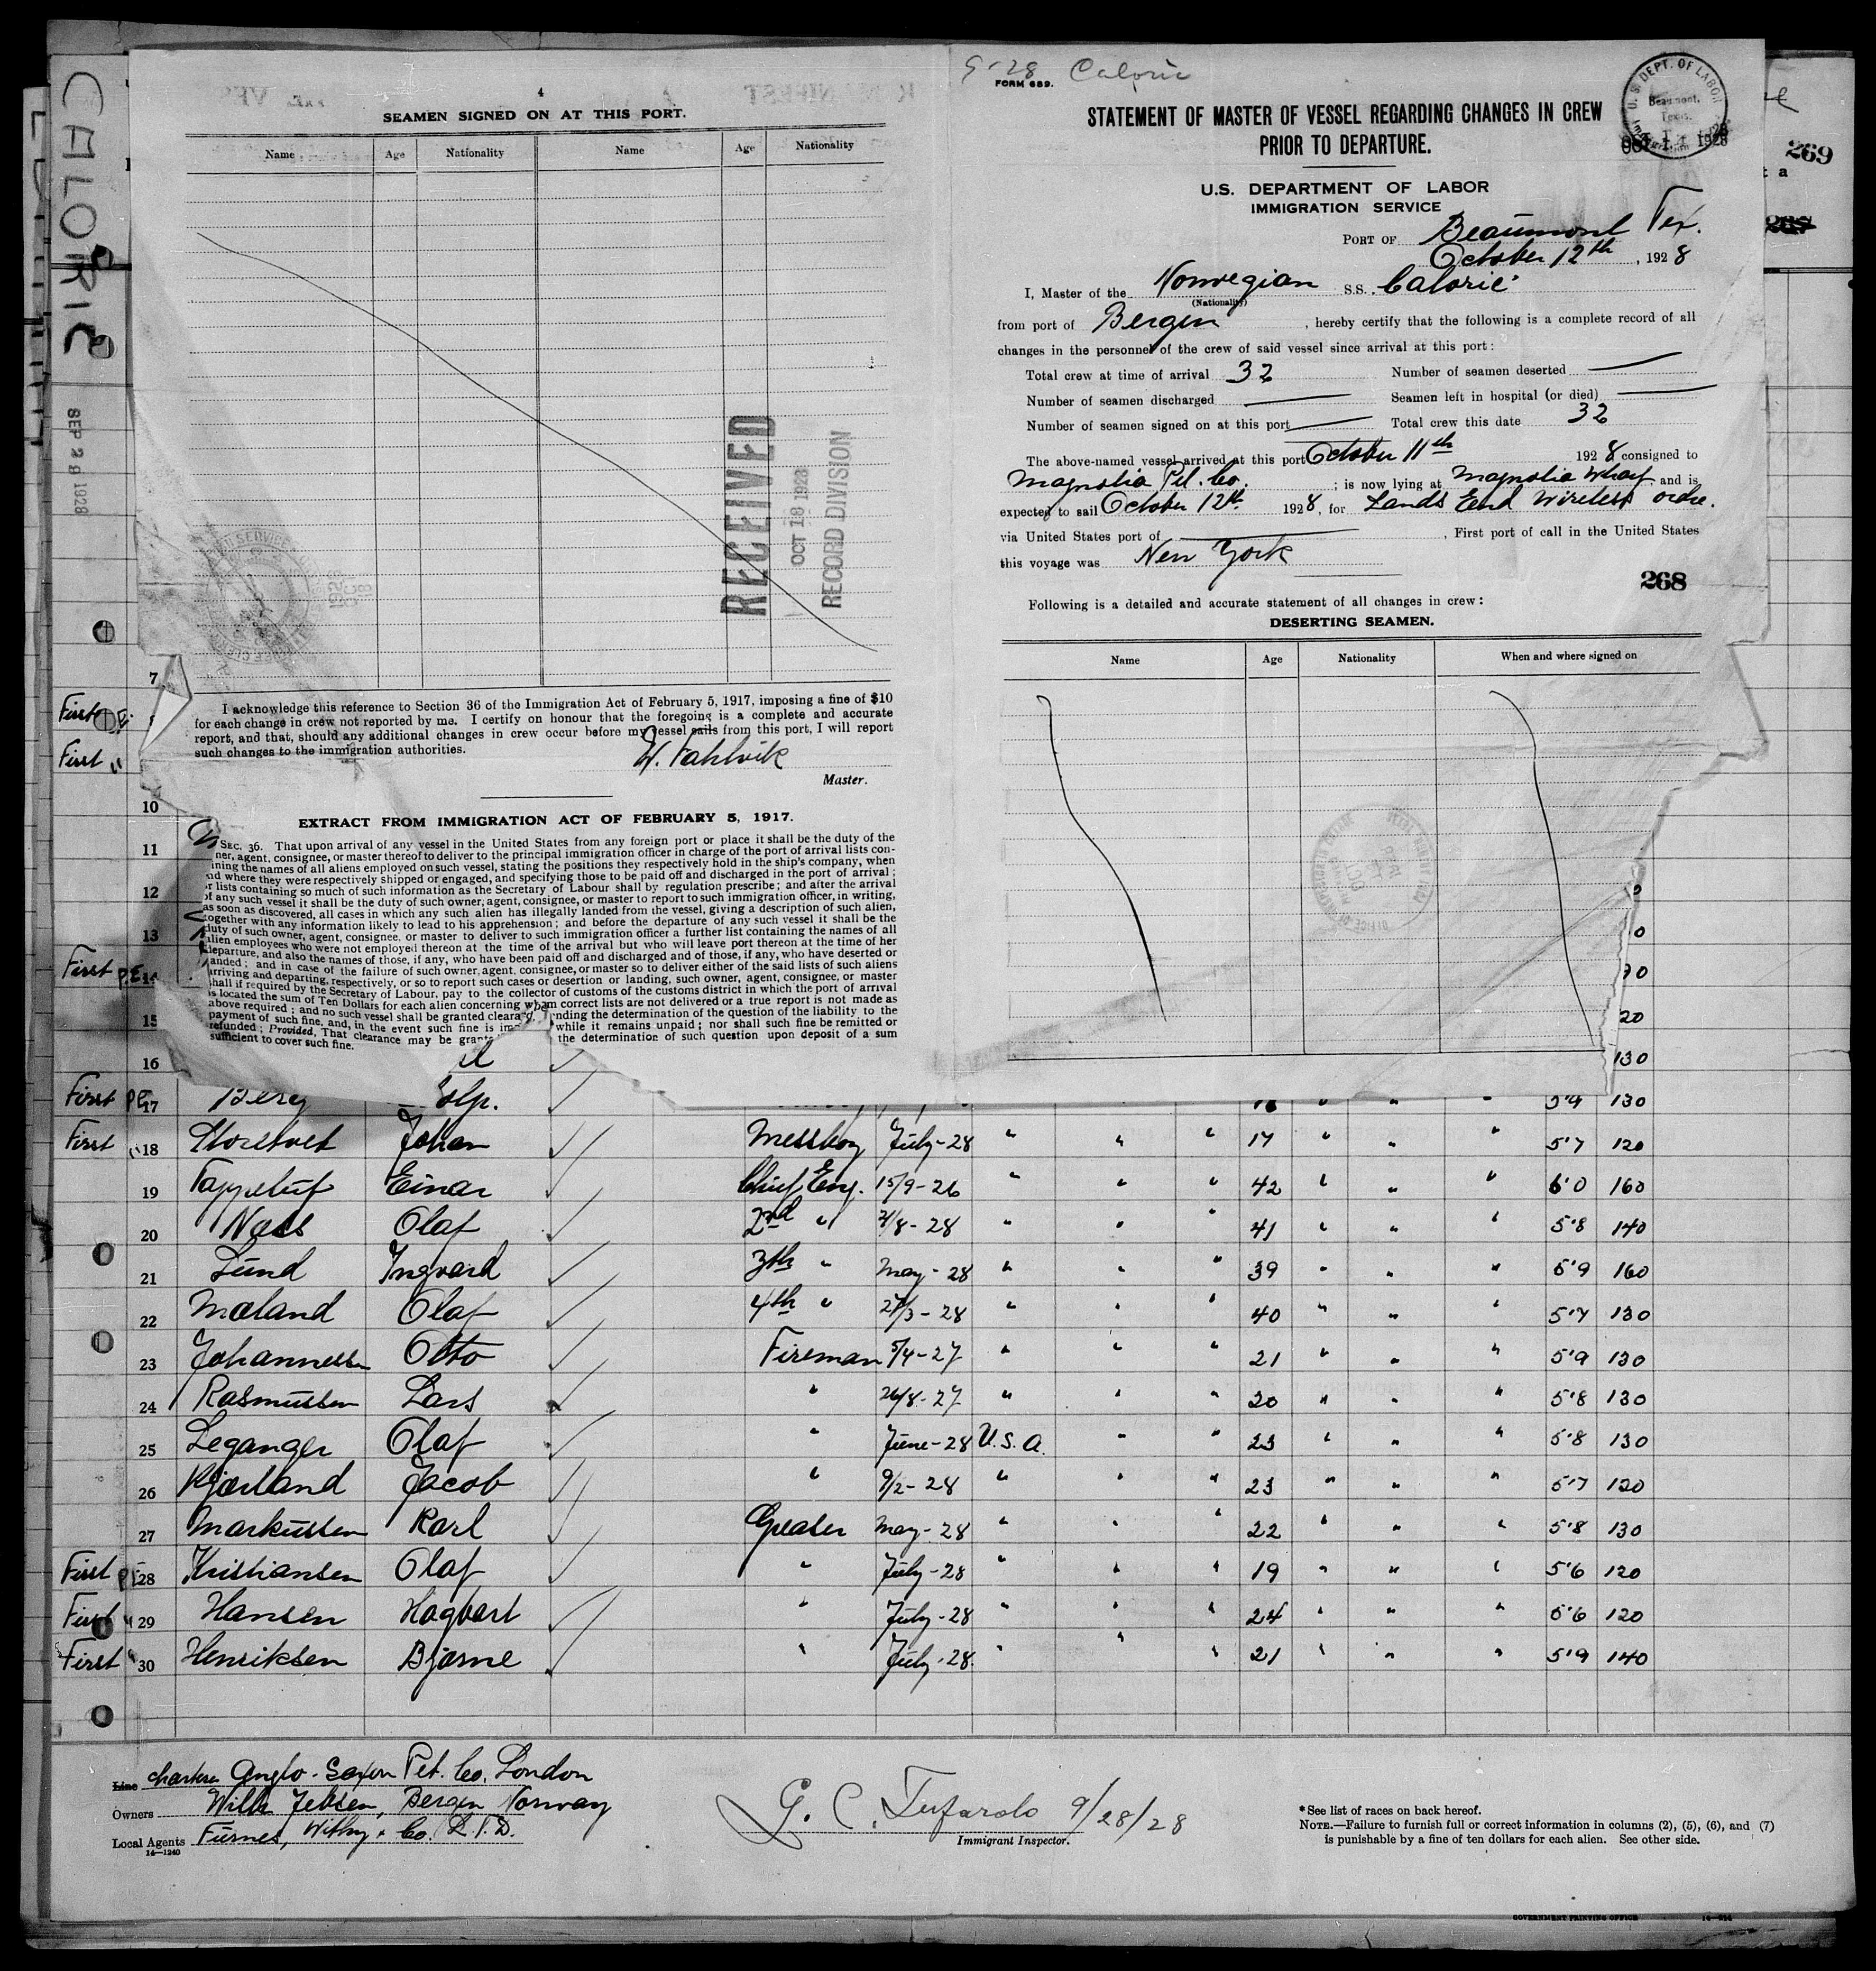 CALORIC
SEP 29 1928
4
SEAMEN SIGNED ON AT THIS PORT.
Name Age Nationality Name Age Nationality
RECEIVED
OCT 18 1928
RECORD DIVISION
I acknowledge this reference to Section 36 of the Immigration Act of February 5, 1917, imposing a fine of $10
for each change in crew not reported by me. I certify on honour that the foregoing is a complete and accurate
report, and that, should any additional changes in crew occur before my vessel sails from this port, I will report
such changes to the immigration authorities.
Master.
EXTRACT FROM IMMIGRATION ACT OF FEBRUARY 5, 1917.
SEC. 36. That upon arrival of any vessel in the United States from any foreign port or place it shall be the duty of the
ner, agent, consignee, or master thereof to deliver to the principal immigration officer in charge of the port of arrival lists con-
ining the names of all aliens employed on such vessel, stating the positions they respectively hold in the ship's company, when
nd where they were respectively shipped or engaged, and specifying those to be paid off and discharged in the port of arrival;
r lists containing so much of such information as the Secretary of Labour shall by regulation prescribe; and after the arrival
of any such vessel it shall be the duty of such owner, agent, consignee, or master to report to such immigration officer, in writing,
as soon as discovered, all cases in which any such alien has illegally landed from the vessel, giving a description of such alien,
together with any information likely to lead to his apprehension; and before the departure of any such vessel it shall be the
duty of such owner, agent, consignee, or master to deliver to such immigration officer a further list containing the names of all
alien employees who were not employed thereon at the time of the arrival but who will leave port thereon at the time of her
departure, and also the names of those, if any, who have been paid off and discharged and of those, if any, who have deserted or
landed; and in case of the failure of such owner, agent, consignee, or master so to deliver either of the said lists of such aliens
arriving and departing, respectively, or so to report such cases or desertion or landing, such owner, agent, consignee, or master
shall if required by the Secretary of Labour, pay to the collector of customs of the customs district in which the port of arrival
is located the sum of Ten Dollars for each alien concerning whom correct lists are not delivered or a true report is not made as
above required; and no such vessel shall be granted clearance nding the determination of the question of the liability to the
payment of such fine, and, in the event such fine is im while it remains unpaid; nor shall such fine be remitted or
refunded; Provided, That clearance may be grante the determination of such question upon deposit of a sum
sufficient to cover such fine.
9-28 Caloric
FORM 689.
STATEMENT OF MASTER OF VESSEL REGARDING CHANGES IN CREW
PRIOR TO DEPARTURE.
U. S. DEPT. OF LABOR
Beaumont,
Texas.
Immigration
1928
269
U.S. DEPARTMENT OF LABOR
IMMIGRATION SERVICE
PORT OF Beaumont Tex.
October 12th, 1928
I, Master of the Norwegian S.S. Caloric
(Nationality)
from port of Bergen, hereby certify that the following is a complete record of all
changes in the personnel of the crew of said vessel since arrival at this port:
Total crew at time of arrival 32 Number of seamen deserted —
Number of seamen discharged — Seamen left in hospital (or died) —
Number of seamen signed on at this port — Total crew this date 32
The above-named vessel arrived at this port October 11th 1928 consigned to
Magnolia Pet. Co.; is now lying at Magnolia Wharf and is
expected to sail October 12th 1928, for Lands End Wireless ordre.
via United States port of —, First port of call in the United States
this voyage was New York
268
Following is a detailed and accurate statement of all changes in crew:
DESERTING SEAMEN.
Name Age Nationality When and where signed on
7
First
First "
10
11
12
13
First P.E. 14
15
16
First PE 17 Berg 5'9 130
First " 18 Johan Messboy July-28 " " " 17 " " " 5'7 120
19 Einar Chief Eng. 15/9-26 " " " 42 " " " 6'0 160
20 Ness Olaf 2nd " 7/8-28 " " " 41 " " " 5'8 140
21 Lund Ingvard 3th " May-28 " " " 39 " " " 5'9 160
22 Mæland Olaf 4th " 27/3-28 " " " 40 " " " 5'7 130
23 Johannessen Otto Fireman 5/4-27 " " " 21 " " " 5'9 130
24 Rasmussen Lars " 26/8-27 " " " 20 " " " 5'8 130
25 Leganger Olaf " June-28 U.S.A. " " 23 " " " 5'8 130
26 Kjærland Jacob " 9/2-28 " " " 23 " " " 5'7 120
27 Markussen Karl Greaser May-28 " " " 22 " " " 5'8 130
First PE 28 Kristiansen Olaf " July-28 " " " 19 " " " 5'6 120
First " 29 Hansen Hagbart " July-28 " " " 24 " " " 5'6 120
First " 30 Henriksen Bjarne " July-28 " " " 21 " " " 5'9 140
Line charters Anglo-Saxon Pet. Co. London
Owners Wilh Jebsen, Bergen Norway
Local Agents Furnes, Withy & Co. LTD.
14—1240
G. C. Tufarolo 9/28/28
Immigrant Inspector.
* See list of races on back hereof.
NOTE.—Failure to furnish full or correct information in columns (2), (5), (6), and (7)
is punishable by a fine of ten dollars for each alien. See other side.
GOVERNMENT PRINTING OFFICE